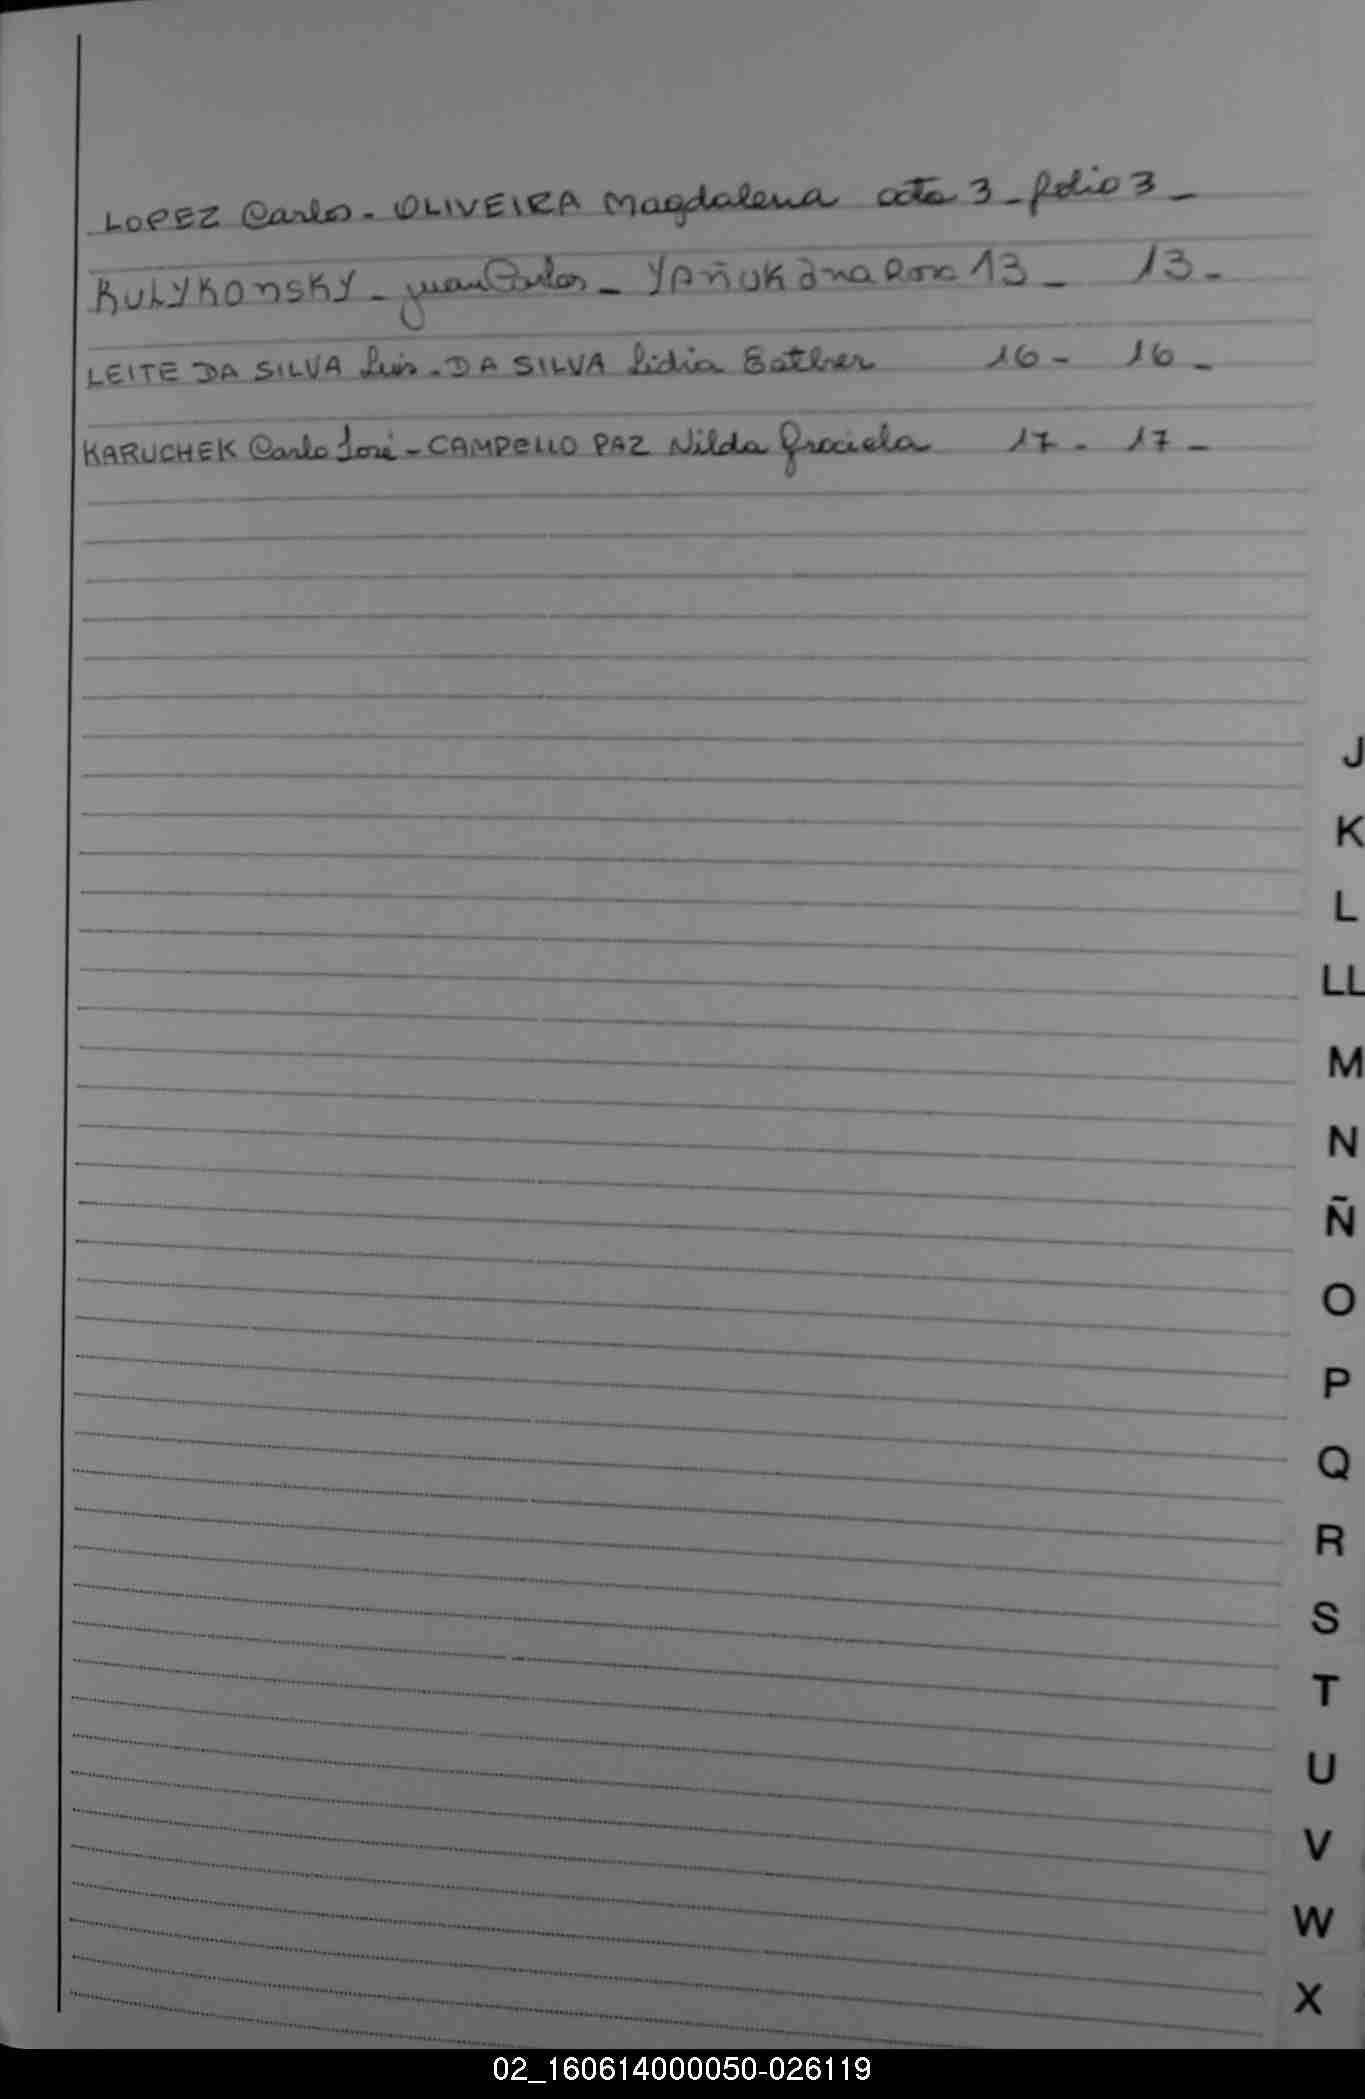 LOPEZ Carlos - OLIVEIRA Magdalena acta 3 - folio 3 -
KULYKONSKY - Juan Carlos - YAÑUK Ana Rosa 13 - 13 -
LEITE DA SILVA Luis - DA SILVA Lidia Esther 16 - 16 -
KARUCHEK Carlo José - CAMPELLO PAZ Nilda Graciela 17 - 17 -
J
K
L
LL
M
N
Ñ
O
P
Q
R
S
T
U
V
W
X
02_160614000050-026119